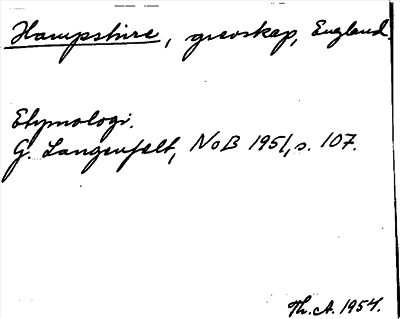 Hampshire, grevskap, England.
Etymologi.
G. Langenfelt, NoB 1951, s. 107.
Th. A. 1954.